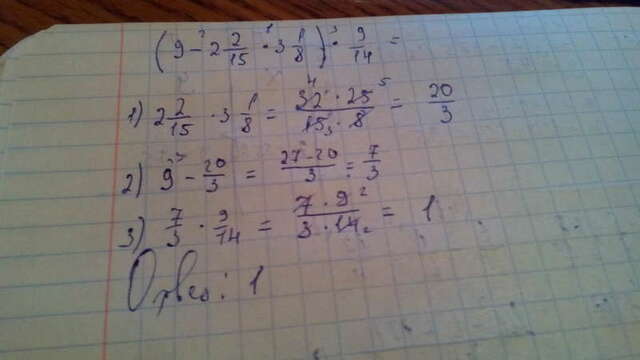 (9 - 2 2/15 · 3 1/8) · 9/14 =
1) 2 2/15 · 3 1/8 = 32 · 25 / 15 · 8 = 20/3
2) 9 - 20/3 = 27-20/3 = 7/3
3) 7/3 · 9/14 = 7 · 9 / 3 · 14 = 1
Ответ: 1